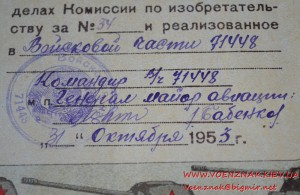 делах Комиссии по изобретатель-
ству за № 34 и реализованное
в Войсковой части 71448
Командир в/ч 71448
м.п. Генерал майор авиации:
"31" Октября 1953 г.
WWW.VOENZNAK.KIEV.UA
voenznak@bigmir.net